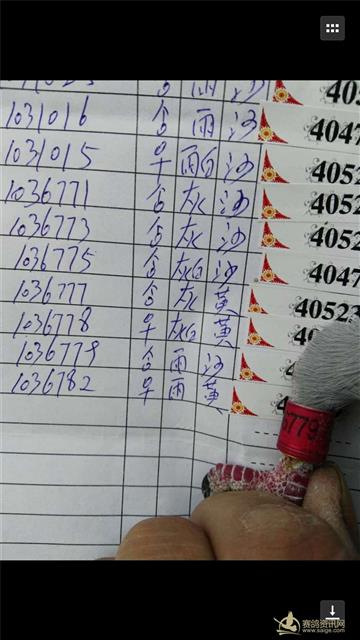 1031016 雨 沙 4047
1031015 雨白 沙 4052
1036771 灰 沙 4052
1036773 灰 沙 4052
1036775 灰白 沙 4047
1036777 灰 黄 40523
1036778 灰白 黄
1036779 雨 沙
1036782 雨 黄
6779
赛鸽资讯网
www.saige.com